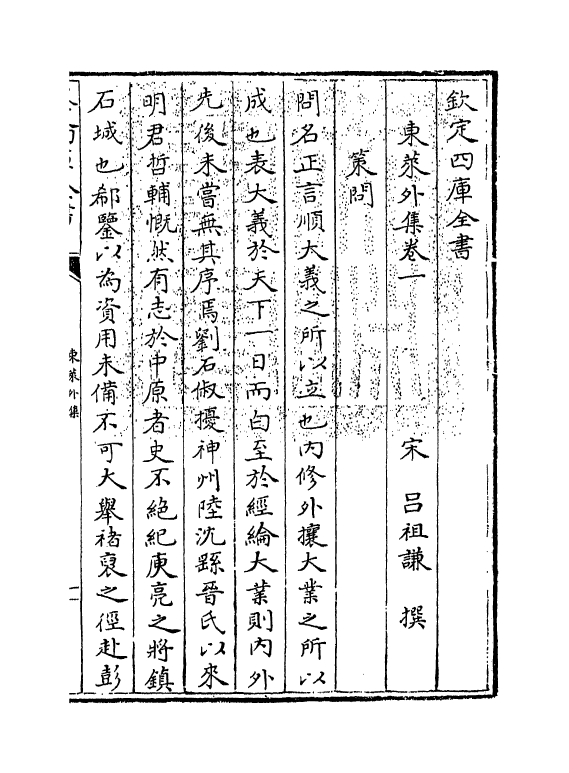 欽定四庫全書
東萊外集卷一
宋 呂祖謙 撰
策問
問名正言順大義之所以立也内修外攘大業之所以
成也表大義於天下一日而白至於經綸大業則内外
先後未嘗無其序焉劉石俶擾神州陸沈繇晉氏以來
明君哲輔慨然有志於中原者史不絶紀庾亮之將鎮
石城也郗鑒以為資用未備不可大舉禇裒之徑赴彭
東萊外集
一